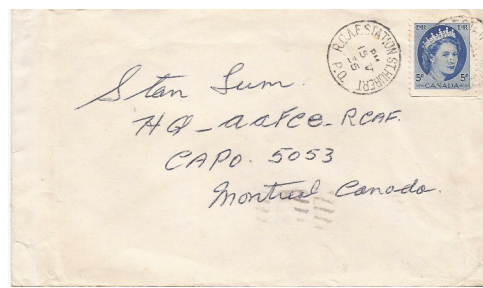 R.C.A.F. STATION ST. HUBERT
P.Q.
PM
15 V
5¢ 5¢
CANADA
Stan Lum.
HQ - AAFCE - RCAF.
CAPO. 5053
Montreal Canada.